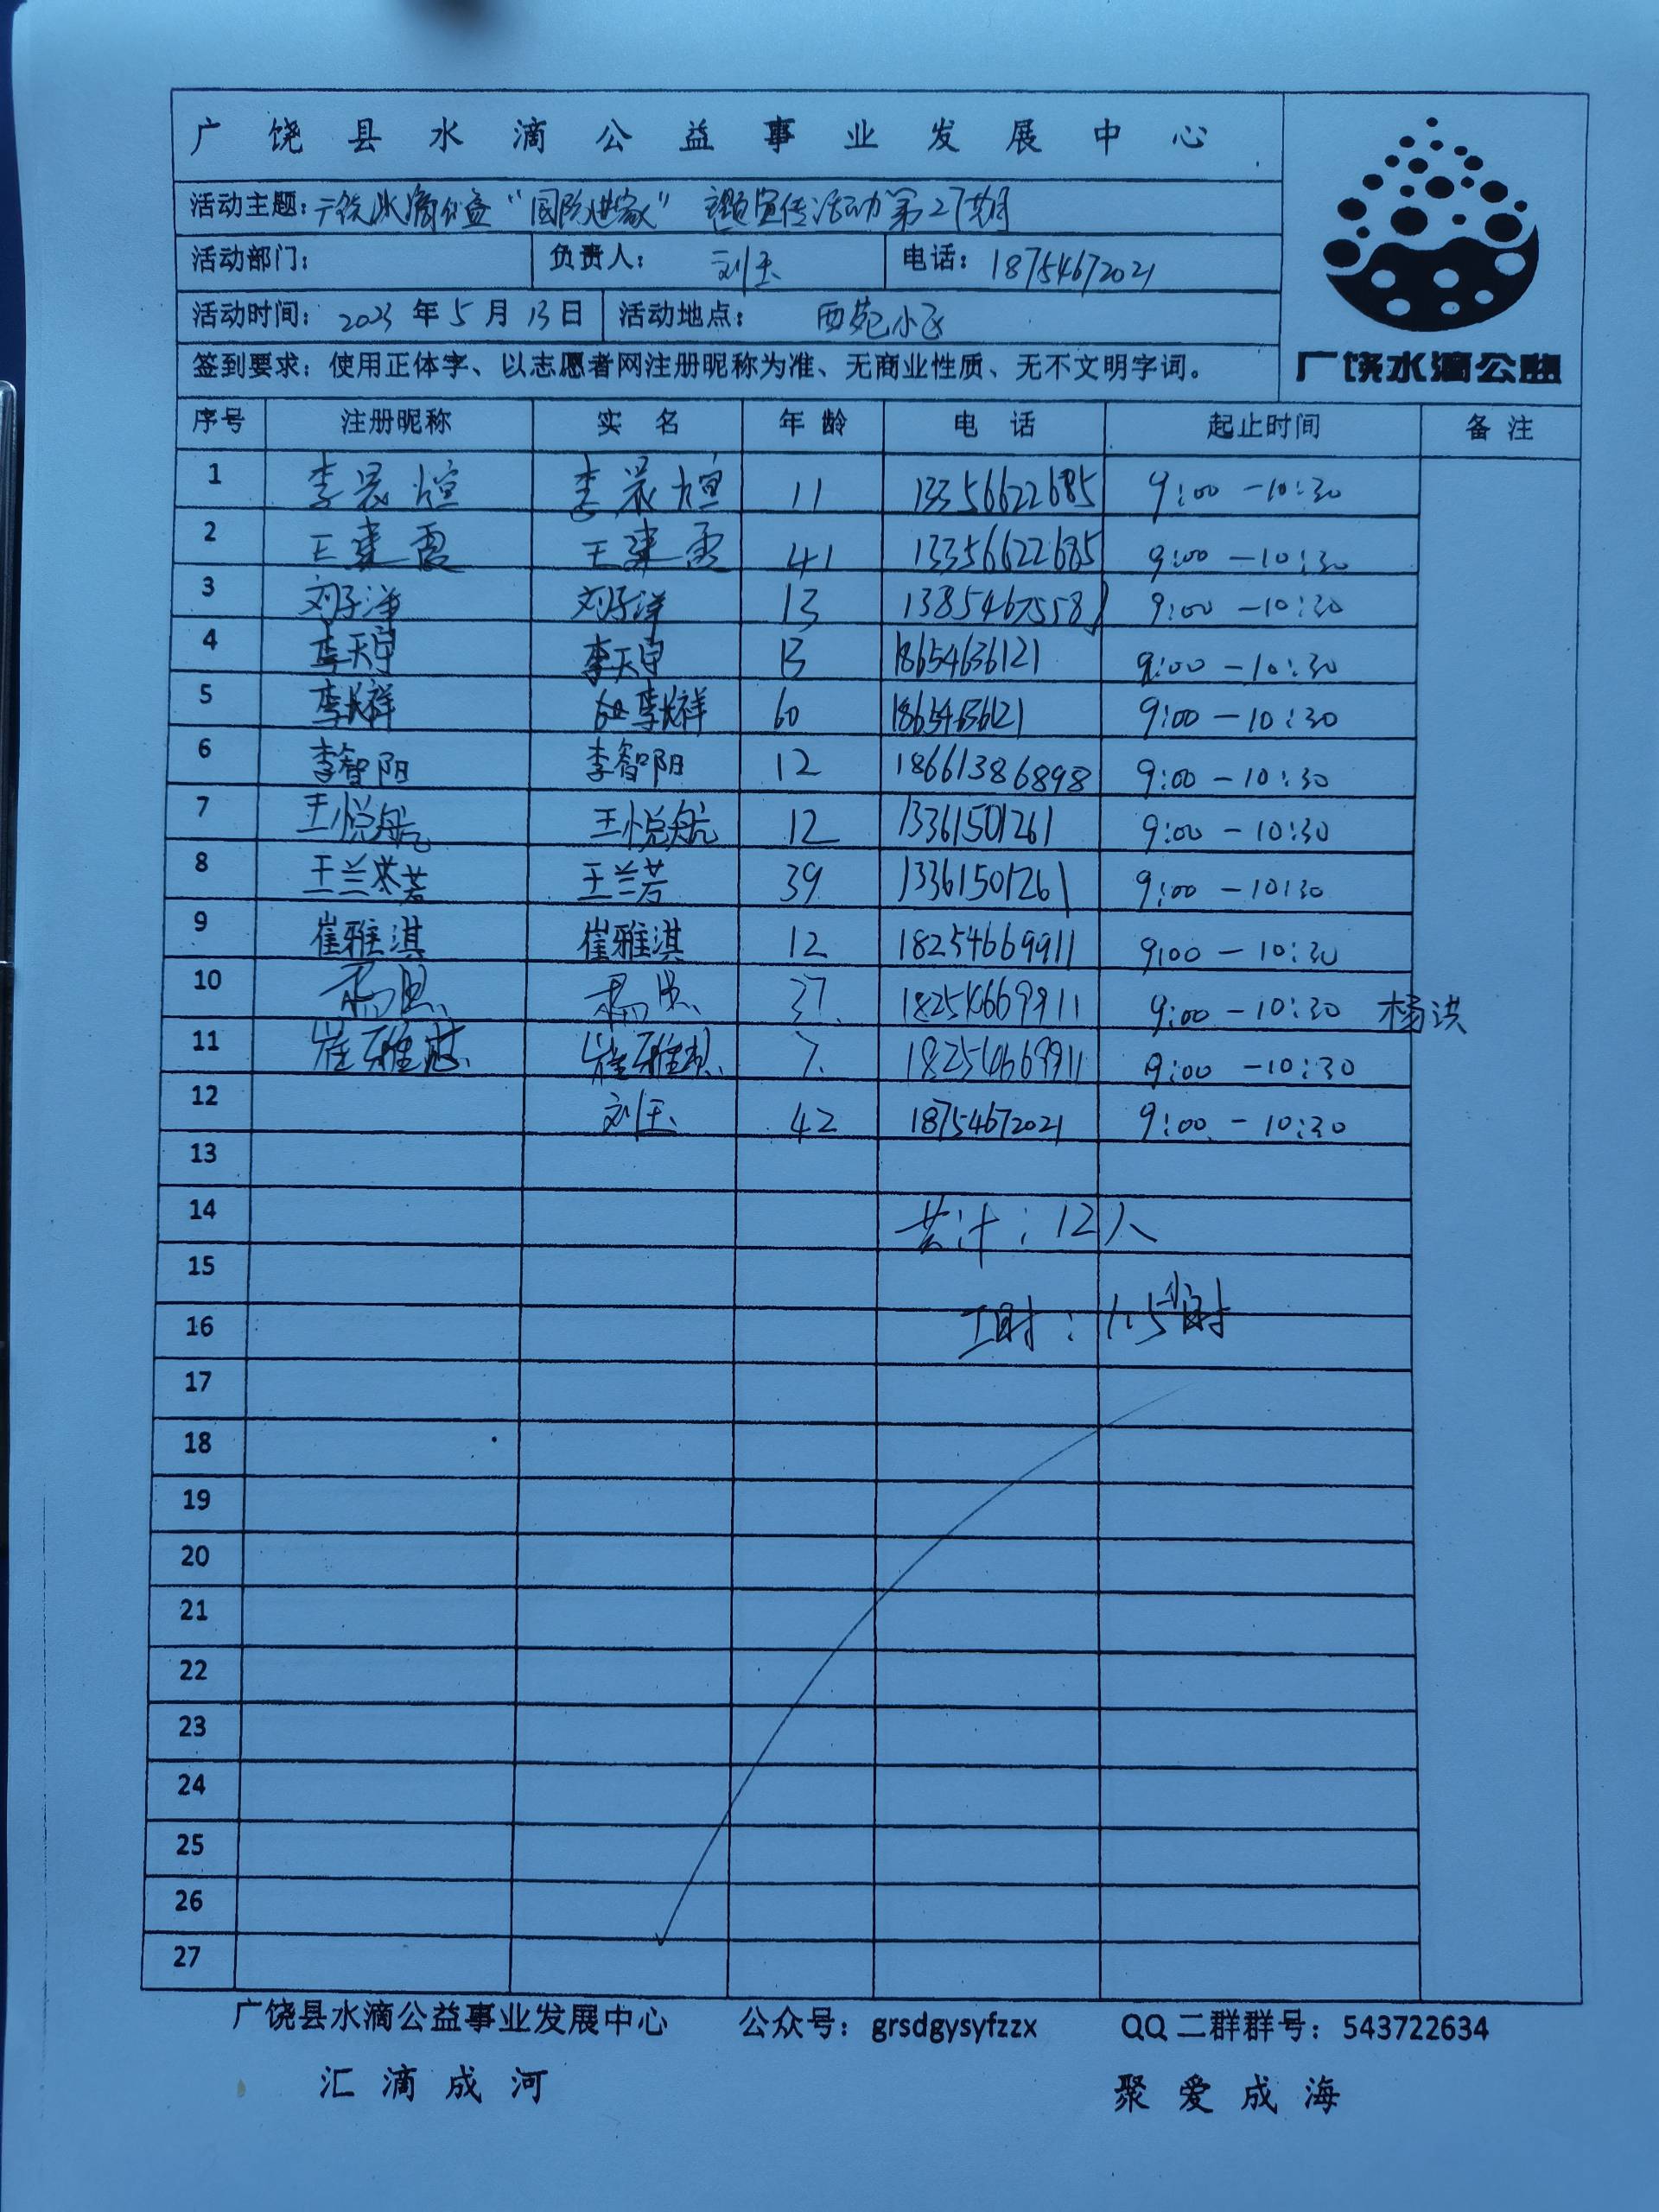 广饶县水滴公益事业发展中心
活动主题：广饶水滴公益“国防进家”主题宣传活动第27期
活动部门： 负责人：刘玉 电话：18754672021
活动时间：2023年5月13日 活动地点：西苑小区
广饶水滴公益
签到要求：使用正体字、以志愿者网注册昵称为准、无商业性质、无不文明字词。
序号 注册昵称 实名 年龄 电话 起止时间 备注
1 李晨煊 李晨煊 11 13356622685 9:00-10:30
2 王建霞 王建霞 41 13356622685 9:00-10:30
3 刘子洋 刘子洋 13 13854675581 9:00-10:30
4 李天宇 李天宇 13 18654636121 9:00-10:30
5 李长祥 李长祥 60 18654636121 9:00-10:30
6 李智阳 李智阳 12 18661386898 9:00-10:30
7 王悦航 王悦航 12 13361501261 9:00-10:30
8 王兰若 王兰若 39 13361501261 9:00-10:30
9 崔雅淇 崔雅淇 12 18254669911 9:00-10:30
10 37 18254669911 9:00-10:30 杨洪
11 崔雅 崔雅 7 18254669911 9:00-10:30
12 刘玉 42 18754672021 9:00-10:30
13
14 共计：12人
15
16 工时：1.5小时
17
18
19
20
21
22
23
24
25
26
27
广饶县水滴公益事业发展中心 公众号：grsdgysyfzzx QQ二群群号：543722634
汇滴成河 聚爱成海